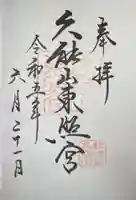 奉拝
久能山東照宮
令和五年
六月二十一日